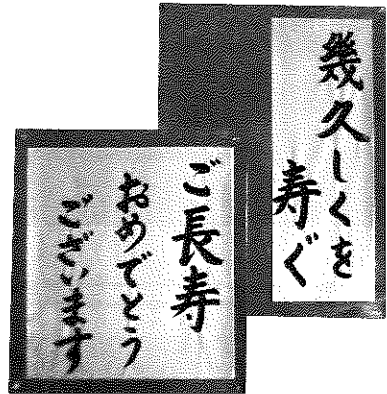 幾久しくを
寿ぐ
ご長寿
おめでとう
ございます